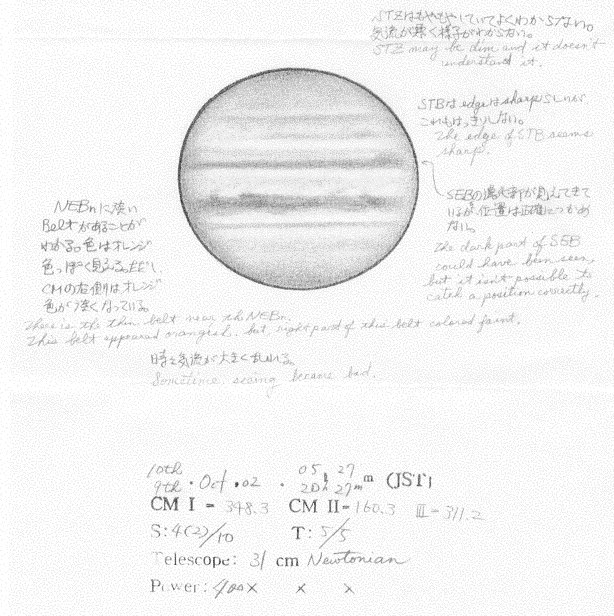 STZはもやもやしていてよくわからない。
気流が悪く様子がわからない。
STZ may be dim and it doesn't
understand it.
STBはedgeはsharpらしいが、
これもはっきりしない。
The edge of STB seems
sharp.
SEBの濃い部が見えてきて
いるが位置は正確につかめ
ない。
The dark part of SEB
could have been seen,
but it isn't possible to
catch a position correctly.
NEBnに淡い
Beltがあることが
わかる。色はオレンジ
色っぽく見える。ただし、
CMの右側はオレンジ
色が淡くなっている。
There is the thin belt near the NEBn.
This belt appeared orangish, but, right part of this belt colored faint.
時々気流が大きく乱れる。
Sometime, seeing became bad.
10th 05 27
9th . Oct . 02 . 20h 27m m (JST)
CM I = 348.3 CM II= 160.3 III=311.2
S: 4(2)/10 T: 5/5
Telescope: 31 cm Newtonian
Power: 400× × ×